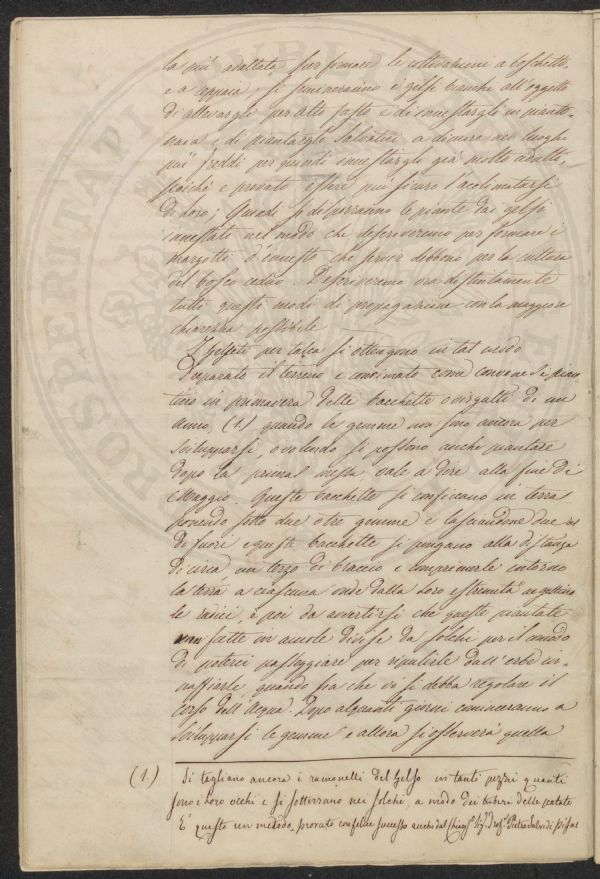 la più adattata per formare le coltivazioni a boschetto,
e a ceppaia; si semineranno i gelsi bianchi all'oggetto
di allevargli per alto fusto e di innestargli in pianto-
naia e di piantargli salvatici a dimora nei luoghi
più freddi per quindi innestargli già molto adulti,
poiché è provato essere più sicuro l'acclimatarsi
di loro; Quindi si disporranno le piante dai gelsi
innestati nel modo che descriveremo per formare i
margotti d'innesto che servir debbono per la cultura
del bosco ceduo. Descriveremo ora distintamente
tutti questi modi di propagazione con la maggiore
chiarezza possibile
I gelseti per talea si ottengono in tal modo
Preparato il terreno e concimato come conviene si pian
tino in primavera delle bacchette o virgulti di un
anno, (1.) quando le gemme non sono ancora per
svilupparsi, o volendo si possono anche piantare
dopo la prima messa, vale a dire alla fine di
Maggio. Queste bacchette si conficcano in terra
ponendo sotto due o tre gemme e lasciandone due
di fuori e queste bacchette si pongano alla distanza
di circa un terzo di braccio e comprimerle intorno
la terra a ciascuna onde dalla loro estremità
le radici, è poi da avvertirsi che queste piantate
fatte in aiuole divise da solchi per il comodo
di poterci passeggiare per ripulirle dall'erbe in-
naffiarle, quando sia che vi si debba regolare il
corso dell'acqua. Dopo alquanti giorni cominceranno a
svilupparsi le gemme e allora si osserverà quella
(1.) Si tagliano ancora i ramonelli del Gelso in tanti pezzi quanti
sono i loro occhi e si sotterrano nei solchi, a modo dei tuberi delle patate
E' questo un metodo provato con felice successo anche dal Sig. Prof. Pietro